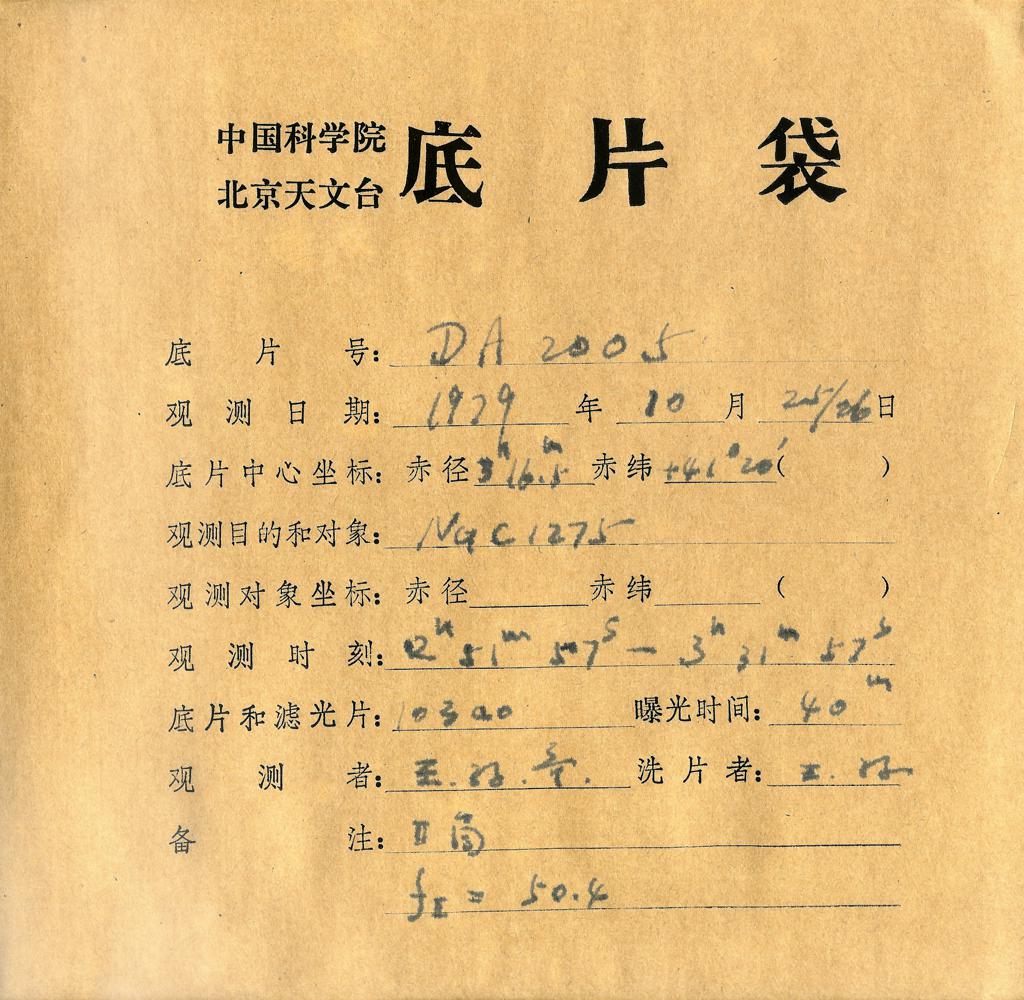 中国科学院
北京天文台
底片袋
底片号: DA 2005
观测日期: 1979 年 10 月 25/26 日
底片中心坐标: 赤径 3h16m.5 赤纬 +41°20′ ( )
观测目的和对象: NGC 1275
观测对象坐标: 赤径 赤纬 ( )
观测时刻: 2h 51m 57s — 3h 31m 57s
底片和滤光片: 103aO 曝光时间: 40m
观测者: 王. 洗片者: 王.
备注: II 筒
fII = 50.4